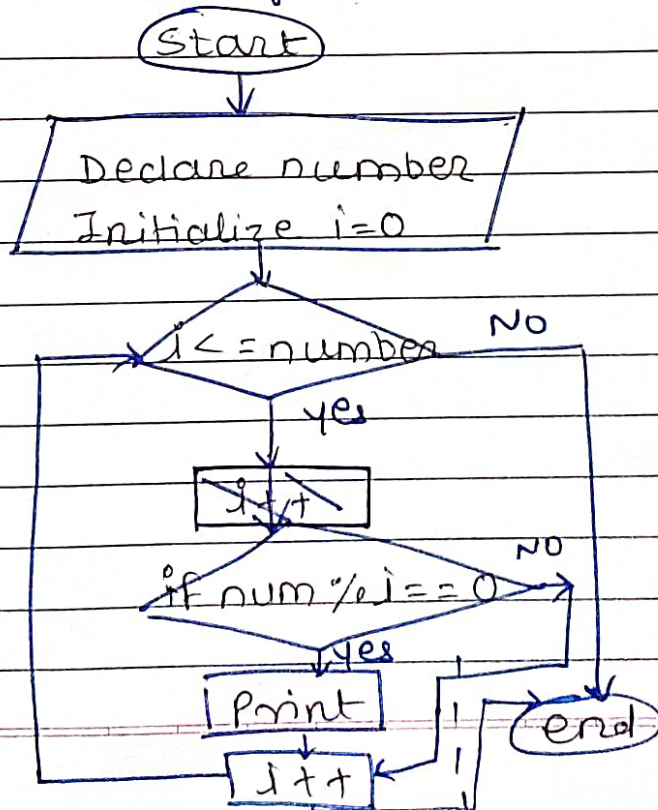 Start
Declare number
Initialize i=0
i<=number
NO
yes
i++
NO
if num%i==0
yes
Print
end
i++